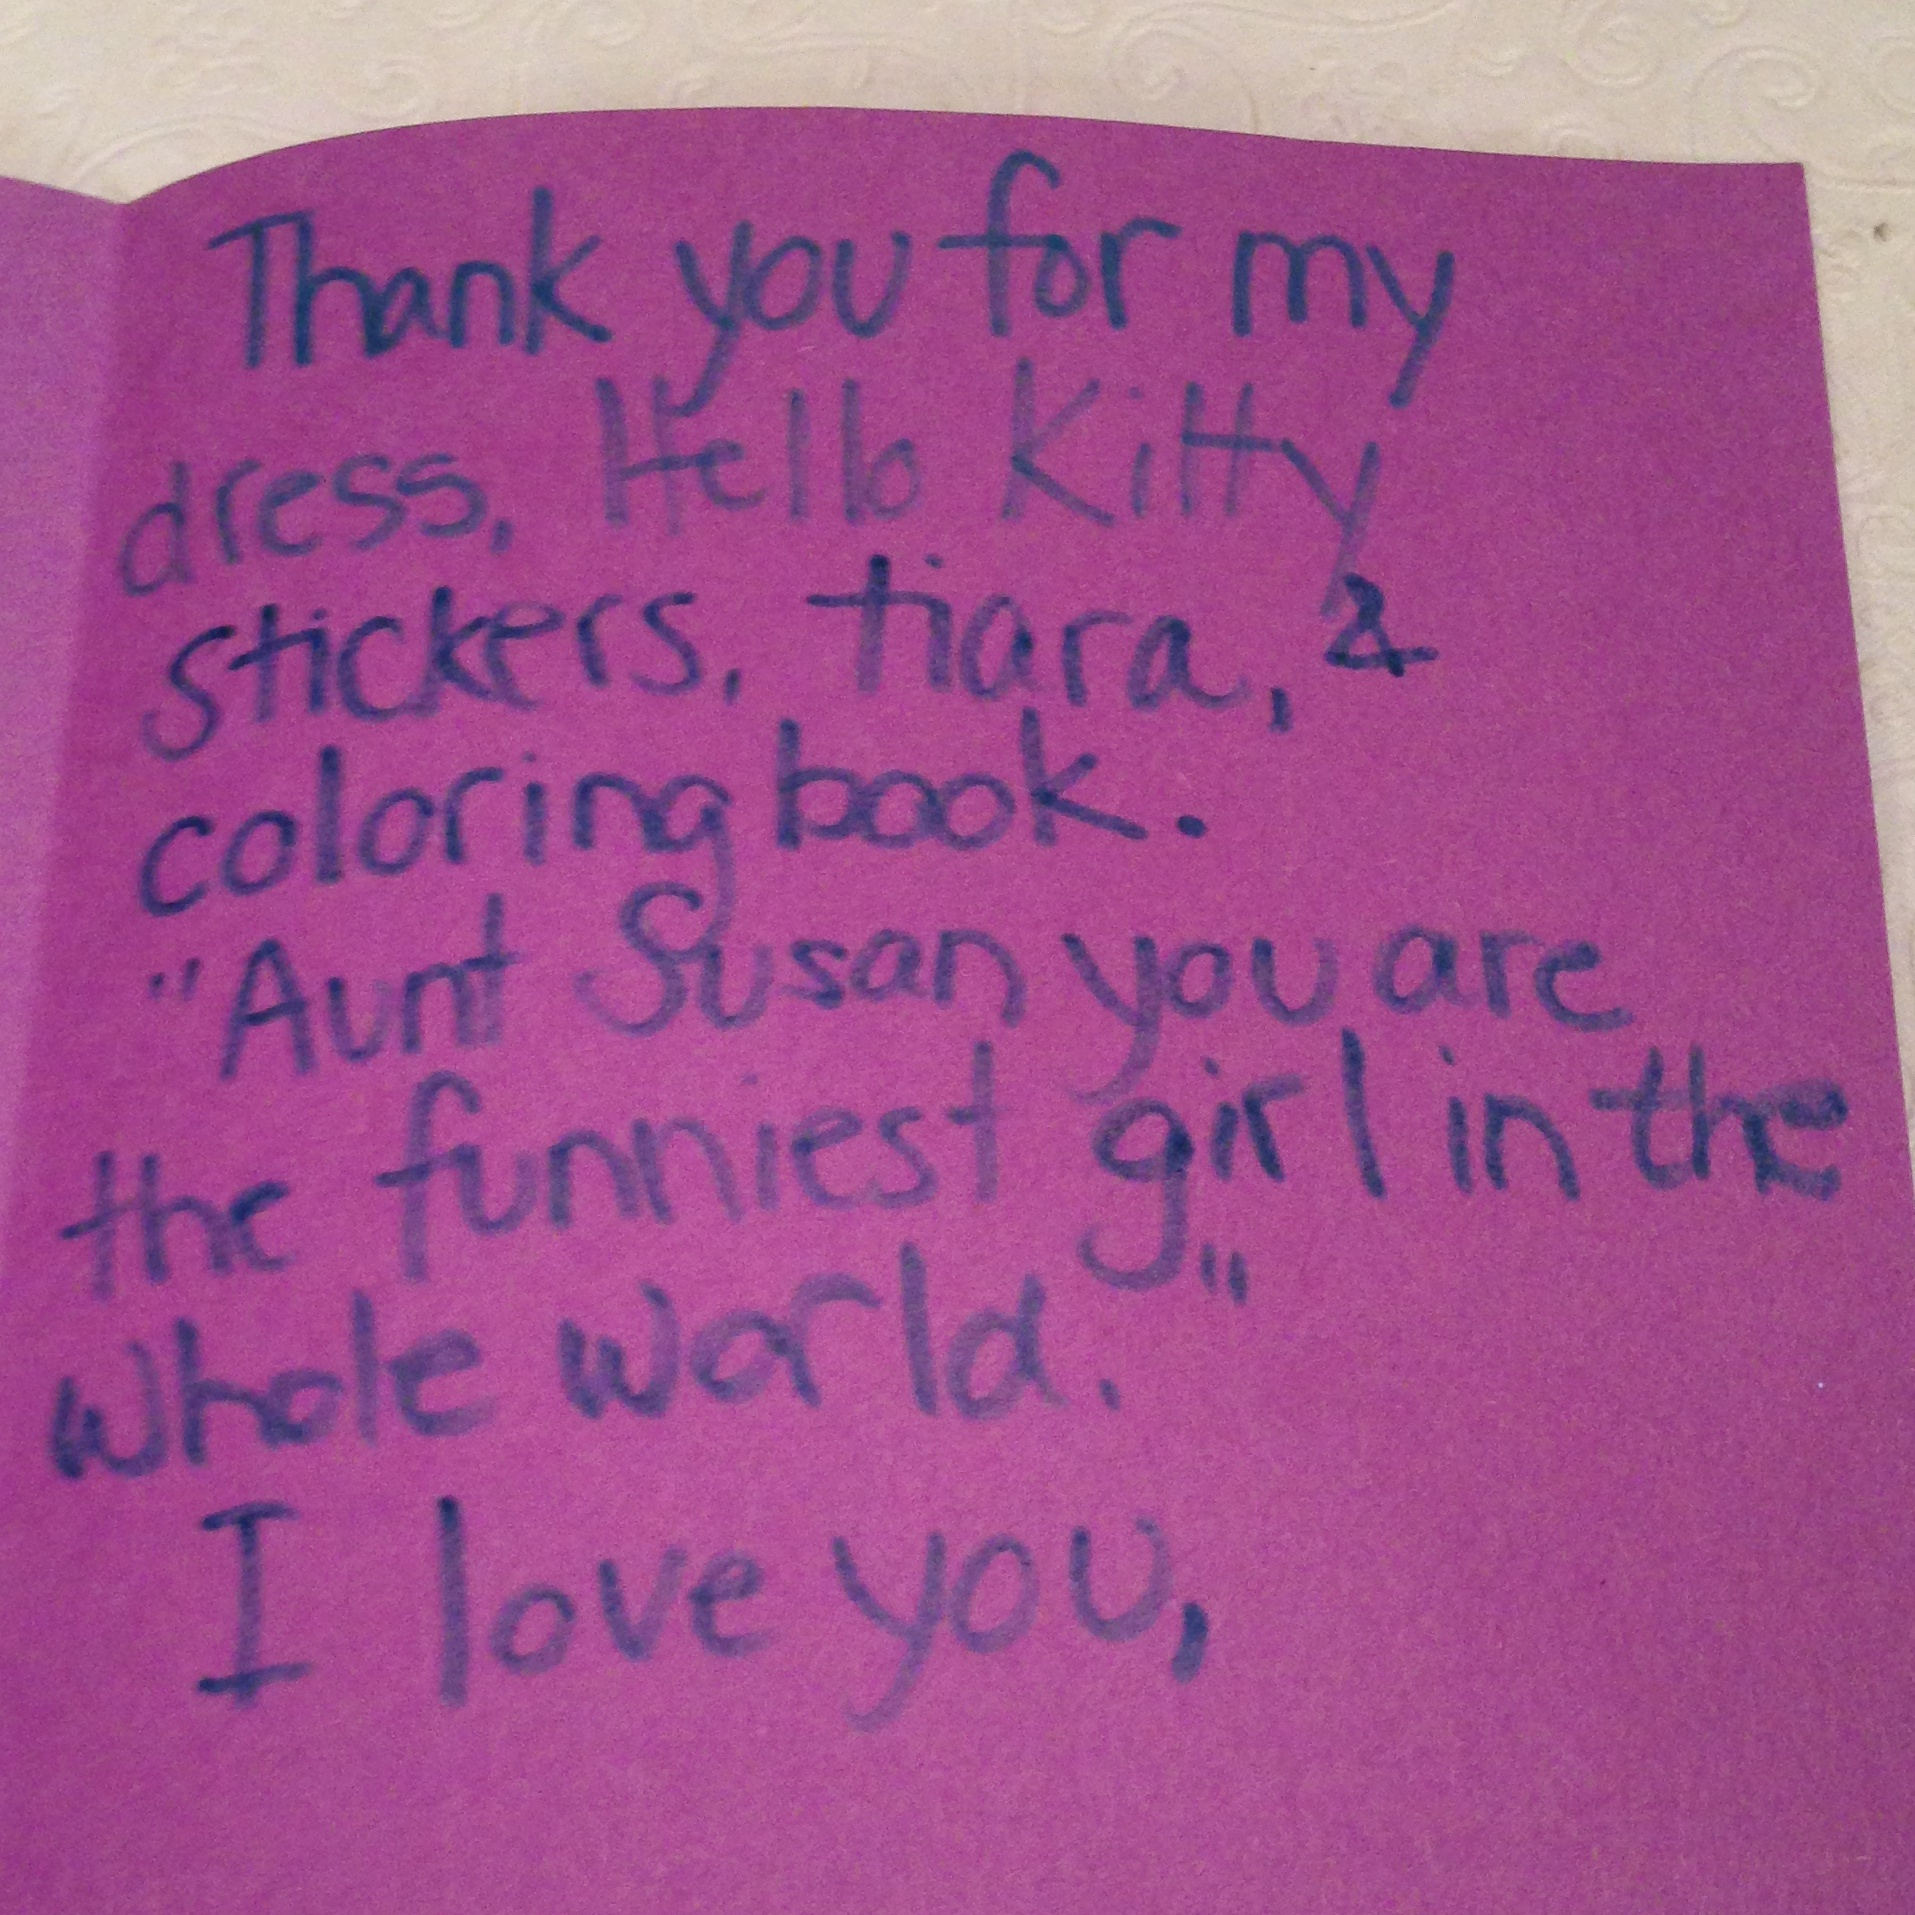 Thank you for my
dress, Hello Kitty
stickers, tiara, &
coloring book.
"Aunt Susan you are
the funniest girl in the
whole world."
I love you,